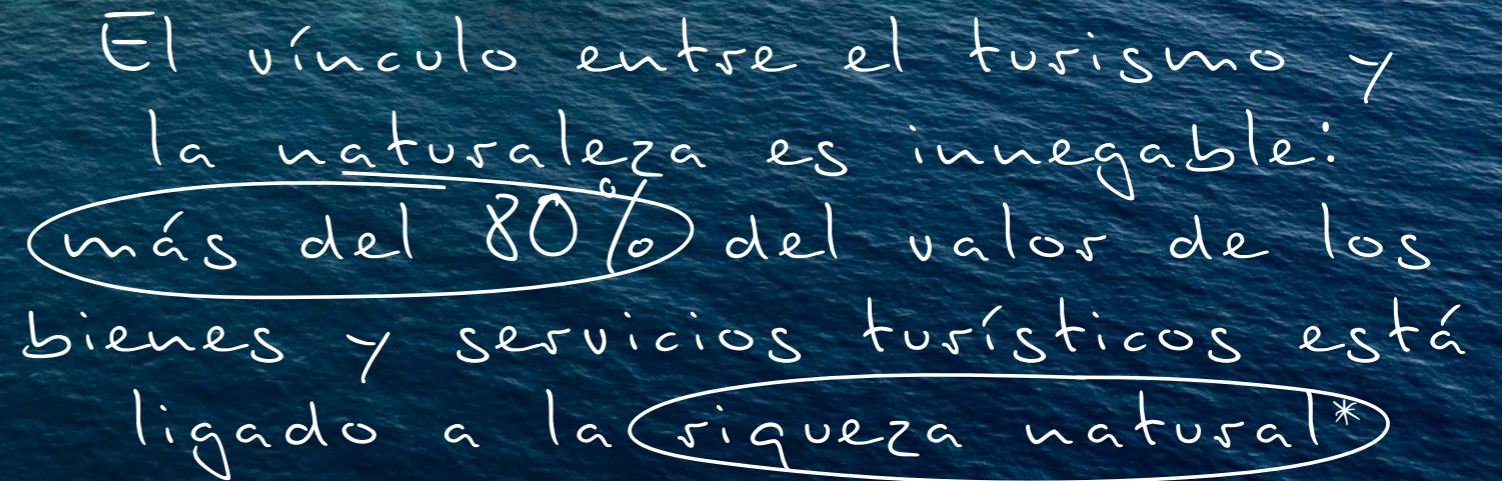 El vínculo entre el turismo y
la naturaleza es innegable:
más del 80% del valor de los
bienes y servicios turísticos está
ligado a la riqueza natural*